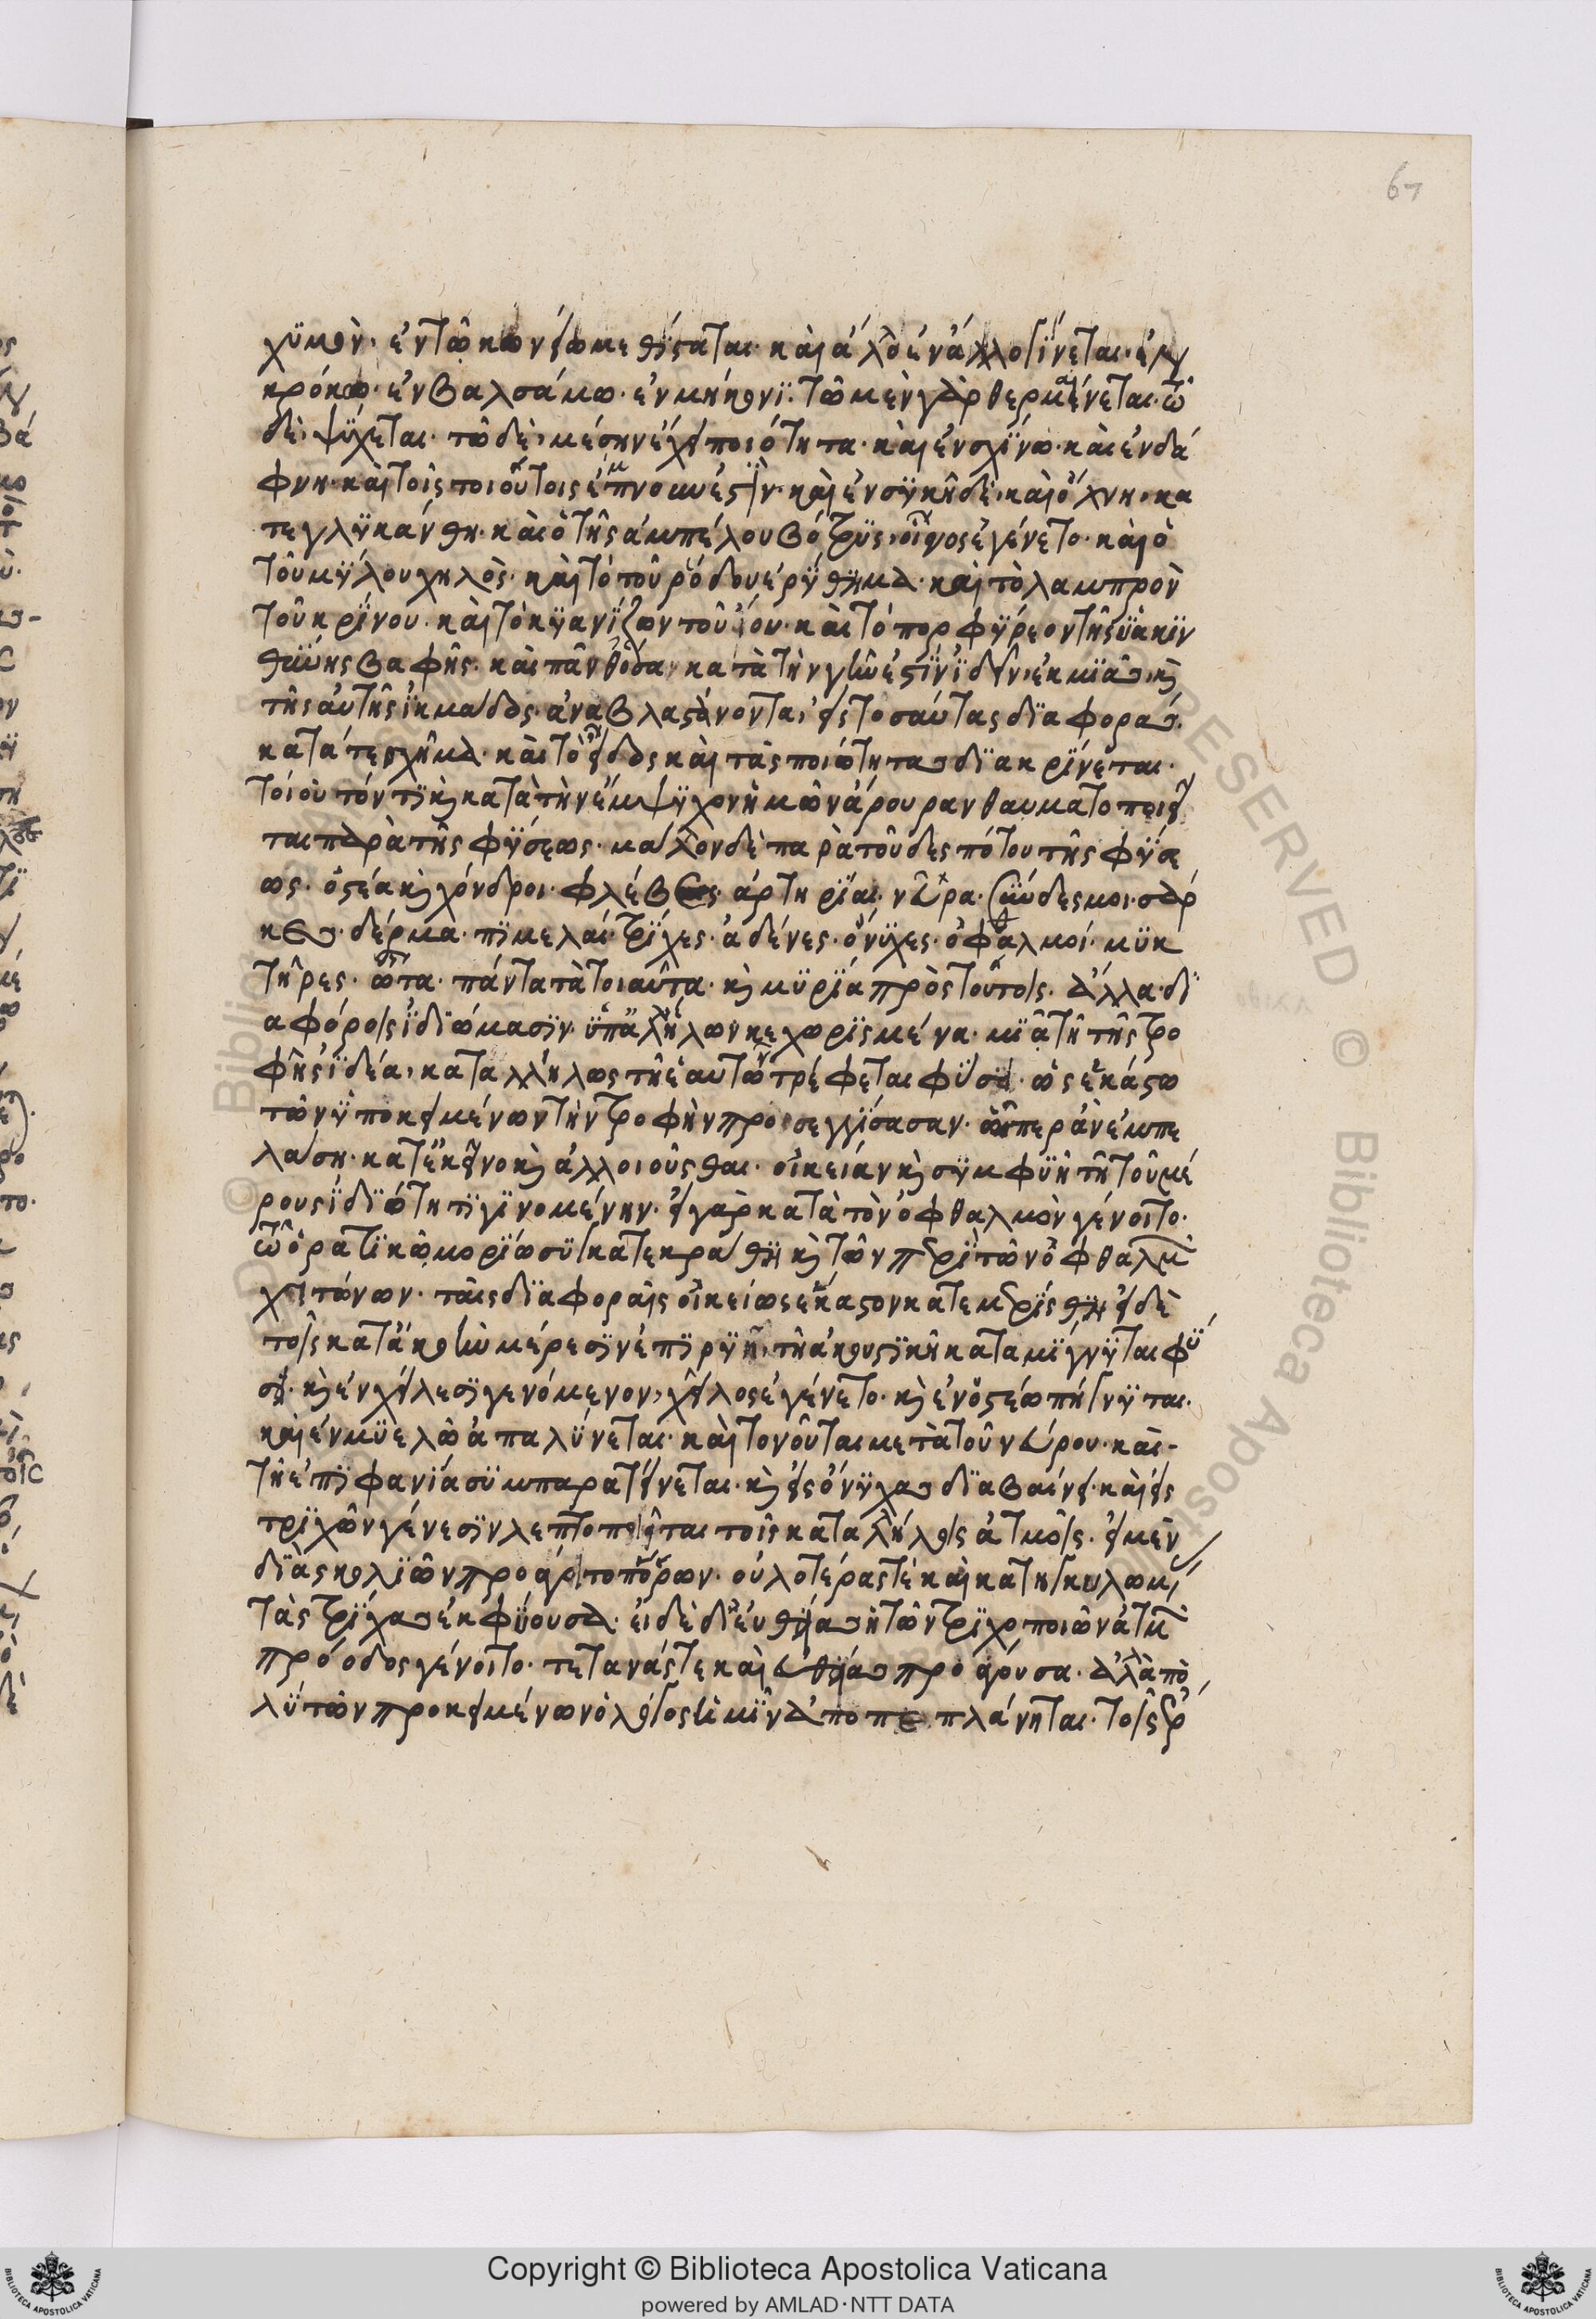 χϋμὸν· ἐν τῶ κωνείω μεθίσταται· καὶ ἄλλο ἐν ἄλλο γίνεται· ἐν
κρόκω· ἐν βαλσάμω· ἐν μήκονϊ· τῶ μὲν γὰρ θερμαίνεται· τῶ
δὲ, ψύχεται· τῶ δὲ, μέσην ἔχει ποιότητα· καὶ ἐν σχίνω· καὶ ἐν δά
φνη· καὶ τοῖς τοιούτοις ἔμπνοων ἐστὶν· καὶ ἐν συκῆ δὲ, καὶ ὄχνη, κα
τεγλϋκάνθη· καὶ ὁ τῆς ἀμπέλου βότρϋς, οἶνος ἐγένετο· καὶ ὁ
τοῦ μΰλου χηλὸς· καὶ τὸ τοῦ ῥόδου ἐρΰθημα· καὶ τὸ λαμπρὸν
τοῦ κρίνου· καὶ τὸ κϋανίζων τοῦ ἴου· καὶ τὸ πορφΰρεον τῆς ϋακιν
θίνης βαφῆς· καὶ πάνθ' ὅσα κατὰ τὴν γῆν ἐστϊν ἰδεῖν, ἐκ μϊᾶς κὶ
τῆς αὐτῆς ἰκμάδος· ἀναβλαστάνοντα, εἰς τοσαύτας δϊαφορὰς·
κατά τε σχῆμα· καὶ τὸ εἶδος καὶ τὰς ποιότητας δϊακρίνεται·
τοιοῦτόν τϊ κὶ κατὰ τὴν ἔμψϋχον ἡμῶν ἄρουραν θαυματοποιεῖ
ται παρὰ τῆς φΰσεως· μάλλον δὲ παρὰ τοῦ δεσπότου τῆς φΰσε
ως· ὀστέα κὶ χόνδροι· φλέβες· ἀρτηρίαι· νεῦρα· σϋύδεσμοι· σάρ
κες· δέρμα· πϊμελαὶ· τρίχες· ἀδένες· ὄνϋχες· ὀφθαλμοί· μϋκ
τῆρες· ὦτα· πάντα τὰ τοιαῦτα· κὶ μϋρία πρὸς τούτοις· ἄλλα· δϊ
αφόροις ἰδϊώμασϊν· ϋπ' ἀλλήλων κεχωρισμένα· μιᾶ τῆ τῆς τρο
φῆς ἰδέα, καταλλήλως τῆ ἑαυτῶν τρέφεται φΰσει· ὡς ἑκάστω
τῶν ϋποκειμένων τὴν τροφὴν προσεγγίσασαν· ὧπερ ἂν ἐμπε
λάση· κατ' ἐκεῖνο κὶ ἀλλοιοῦσθαι· οἰκείαν κὶ σϋμφϋῆ τῆ τοῦ μέ
ρους ἰδϊότητϊ γϊνομένην· εἰ γὰρ κατὰ τὸν ὀφθαλμὸν γένοιτο·
τῶ ὁρατϊκῶ μορίω σϋγκατεκράθη κὶ τῶν περὶ τῶν ὀφθαλμ
χϊτώνων· ταῖς δϊαφοραῖς οἰκείως ἕκαστον κατεμερίσθη· εἰ δὲ
τοῖς κατ' ἀκοὴν μέρεσϊν ἐπϊρϋῆ, τῆ ἀκουστϊκῆ καταμίγνϋται φύ
σει· κὶ ἐν χείλεσϊ γενόμενον, χεῖλος ἐγένετο· κὶ ἐν ὀστέω πήγνϋται·
καὶ ἐν μϋελῶ ἁπαλΰνεται· καὶ τονοῦται μετὰ τοῦ νεύρου· καὶ
τῆ ἐπϊφανία σϋμπαρατείνεται· κὶ εἰς ὄνϋχας δϊαβαίνει· καὶ εἰς
τριχῶν γένεσϊν λεπτοποιεῖται τοῖς καταλλήλοις ἀτμοῖς· εἰ μὲν
διὰ σκολϊῶν προάγοιτο πόρων· οὐλοτέρας τὲ καὶ κατηγκυλωμ
τὰς τρίχας ἐκφΰουσα· εἰ δὲ δι' εὐθείας ἡ τῶν τρϊχοποιῶν ἀτμ
πρόοδος γένοιτο· τετανάς τε καὶ εὐθείας προάγουσα· ἀλλὰ πο
λΰ τῶν προκειμένων ὁ λόγος ἡμῖν ἀποπεπλάνηται· τοῖς ἔρ